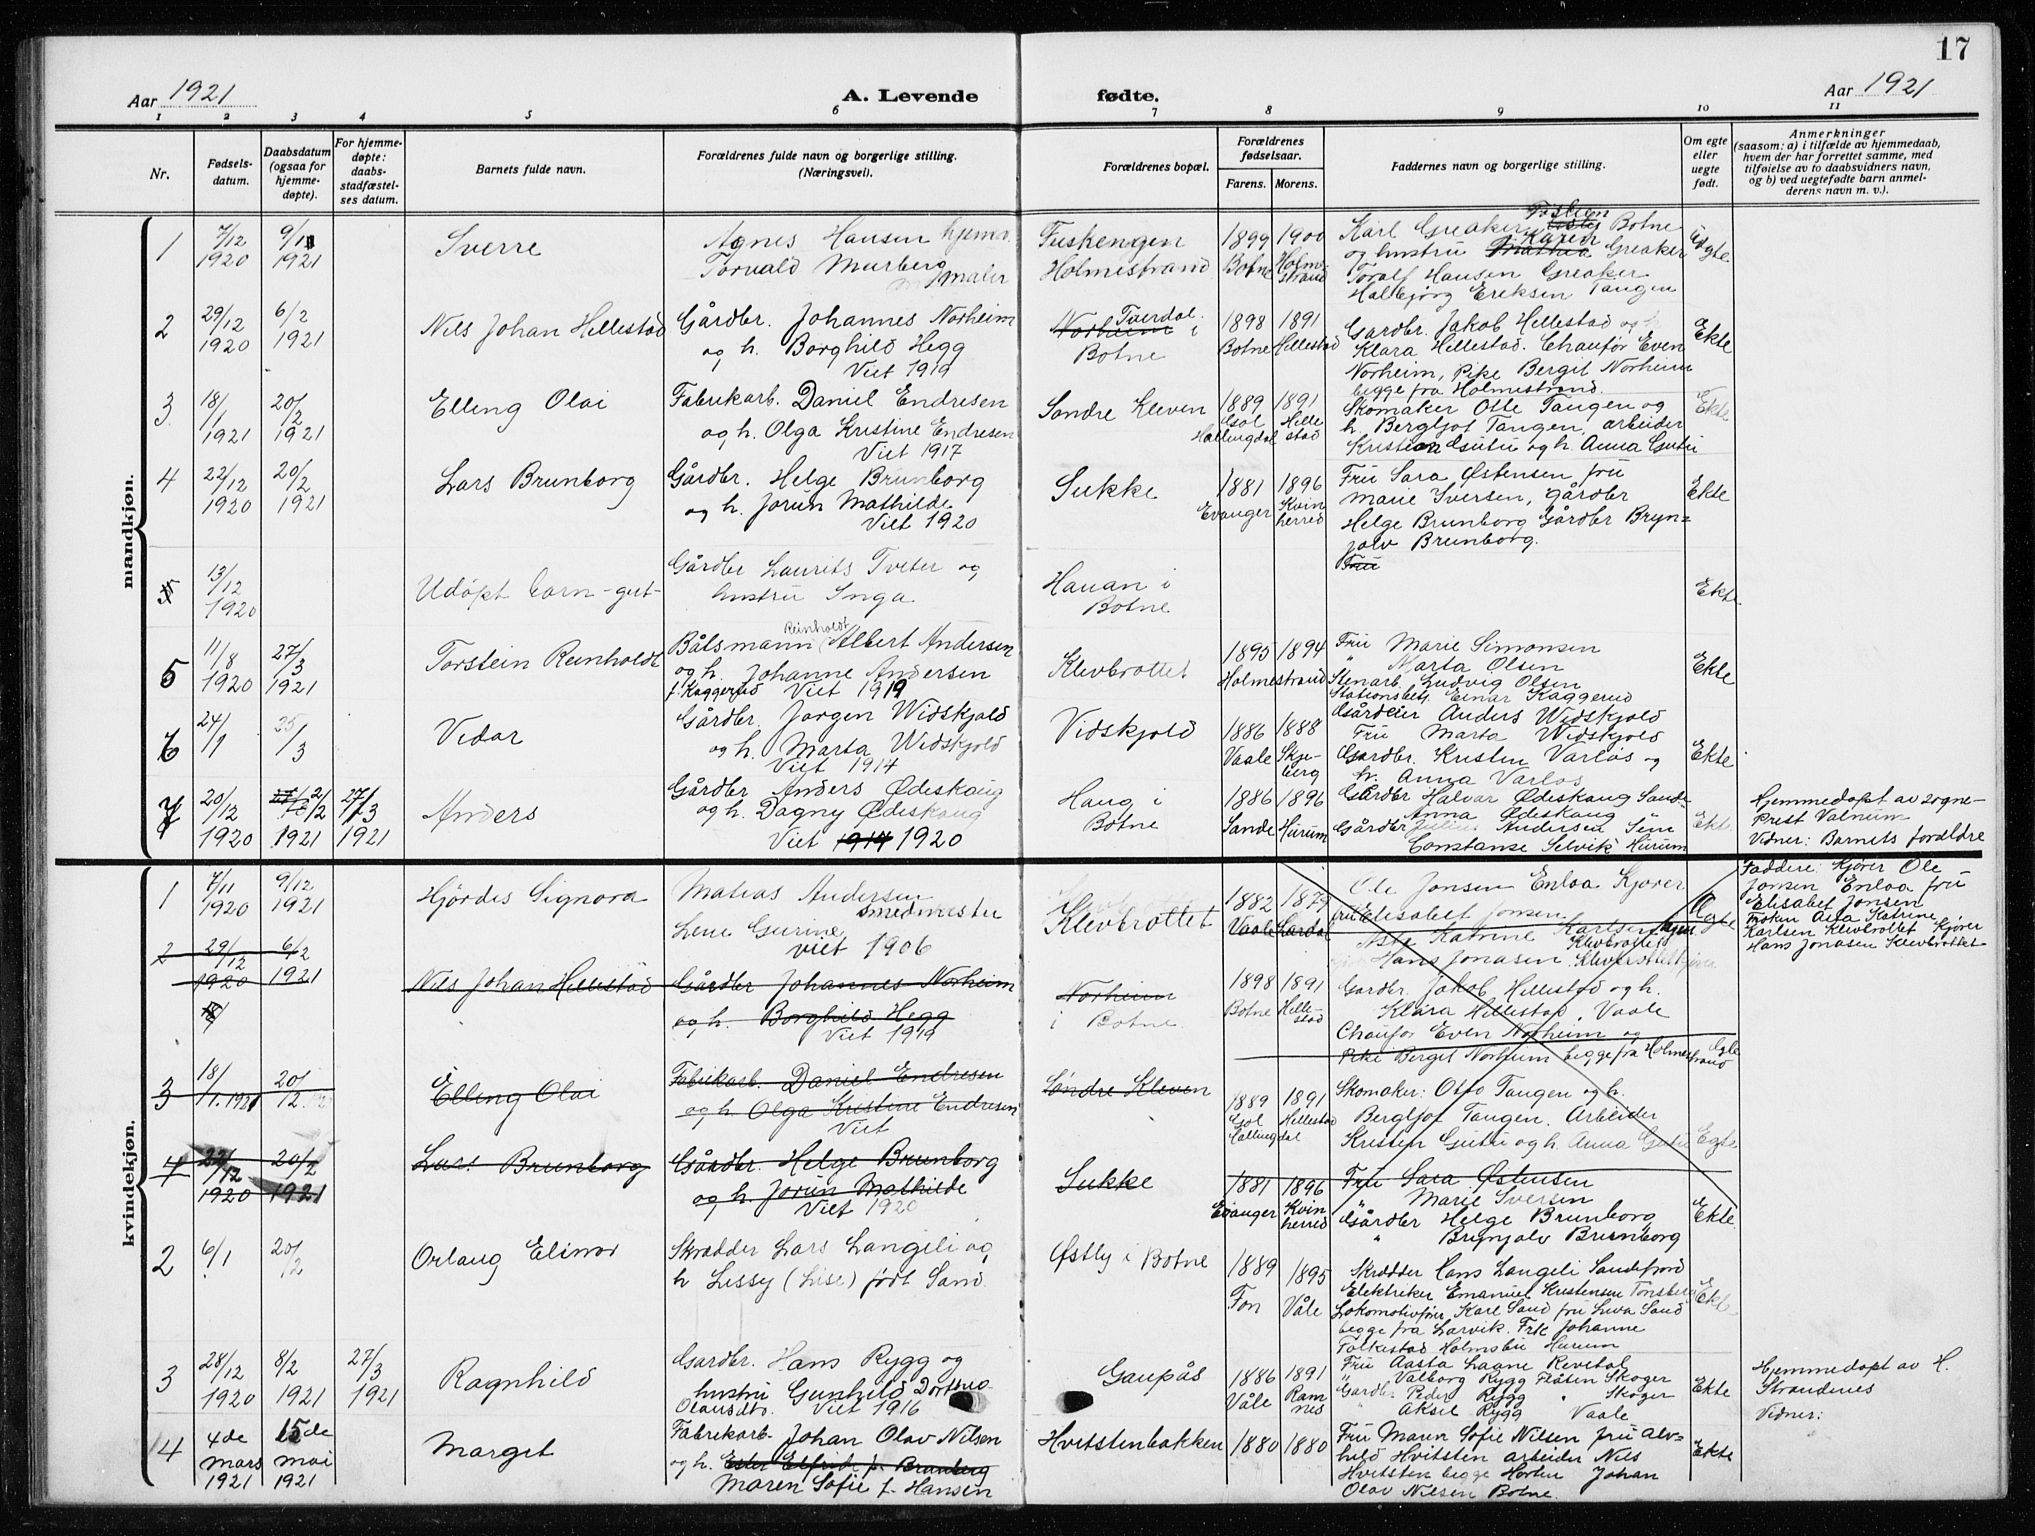 17
Aar 1921
A. Levende fødte.
Aar 1921
1 2 3 4 5 6 7 8 9 10 11
Nr.
Fødsels-
datum.
Daabsdatum
(ogsaa for
hjemme-
døpte).
For hjemme-
døpte:
daabs-
stadfæstel-
ses datum.
Barnets fulde navn.
Forældrenes fulde navn og borgerlige stilling.
(Næringsvei).
Forældrenes bopæl.
Forældrenes
fødselsaar.
Farens. Morens.
Faddernes navn og borgerlige stilling.
Om egte
eller
uegte
født.
Anmerkninger
(saasom: a) i tilfælde av hjemmedaab,
hvem der har forrettet samme, med
tilføielse av to daabsvidners navn,
og b) ved uegtefødte barn anmel-
derens navn m. v.).
mandkjøn.
1
7/12
1920
9/1
1921
Sverre
Agnes Hansen hjemv.
Torvald Murberg
maler
Holmestrand
1899 1900
Botne Holme-
strand
Karl Greaker Botne
og hustru Karen Greaker
Toralf Hansen Greaker
Halbjørg Eriksen Tangen
Uegte
2
29/12
1920
6/2
1921
Nils Johan Hillestad
Gårdbr. Johannes Norheim
og h. Borghild Hegg
Viet 1919
Tuerdal.
Norheim i
Botne
1898 1891
Botne Hillestad
Gardbr. Jakob Hillestad og
Klara Hillestad. Chaufør Even
Norheim, Pike Bergit Norheim
begge fra Holmestrand.
Ekte
3
18/1
1921
20/2
1921
Elling Olai
Fabrikarb. Daniel Endresen
og h. Olga Kristine Endresen
Viet 1917
Søndre Kleven
1889 1891
Gol Hille-
Hallingdal stad
Skomaker Otto Tangen og
h. Bergljot Tangen, arbeider
Kristian Gutu og h. Anna Gutu
Ekte
4
22/12
1920
20/2
1921
Lars Brunborg
Gårdbr. Helge Brunborg
og h. Jorun Mathilde
Viet 1920
Sukke
1881 1896
Evanger Kvin-
herred
Fru Sara Østensen fru
Marie Iversen, gårdbr
Helge Brunborg Gårdbr Bryn=
jolv Brunborg.
Fru
Ekte
5
13/12
1920
Udøpt barn-gut-
Gårdbr Laurits Tveter og
hustru Inga
Hauan i
Botne
Ekte
5
11/8
1920
27/3
1921
Torstein Reinholdt
Reinholdt
Båtsmann Albert Andersen
og h. Johanne Andersen
f. Kaggerud Viet 1919
Klevbrottet
1895 1894
Holmestrand
Fru Marie Simonsen
" Marta Olsen
Stenarb Ludvig Olsen
Stationsbetj. Einar Kaggerud
Ekte
6
24/1
25/3
Vidar
Gårdbr. Jørgen Widskjold
og h. Marta Widskjold
Viet 1914
Vidskjold
1886 1888
Vaale Skje-
berg
Gårdeier Anders Widskjold
Fru Marta Widskjold
Gardbr. Kristen Varløs og
fr. Anna Varløs
Ekte
7
20/12
1920
2/2
1921
27/3
1921
Anders
Gårdbr Anders Ødeskaug
og h. Dagny Ødeskaug
Viet 1914 1920
Haug i
Botne
1886 1896
Sande Hurum
Gårdbr Halvar Ødeskaug Sande
Anna Ødeskaug
Gårdbr Julius Andersen Sem
Constanse Selvik Hurum
Ekte
Hjemmedøpt av sogne-
prest Valnum
Vidner: Barnets forældre
kvindekjøn.
1
7/11
1920
9/12
1921
Hjørdis Signora
Matias Andersen
smedmester
Lene Gurine
viet 1906
Klevbrottet
1882 1879
Vaale Lardal
Ole Jonsen Enloa Kjører
fru Elisabet Jonsen
Katrine Karlsen
Klevbrottet
Hans Jonasen
Egte
Faddere: Kjører Ole
Jonsen Enloa fru
Elisabet Jonsen
Frøken Katrine
Karlsen Klevbrottet Kjører
Hans Jonasen Klevbrottet
2
29/12
1920
6/2
1921
Nils Johan Hillestad
Gårdbr Johannes Norheim
og h. Borghild Hegg
Viet 1919
Norheim
i Botne
1898 1891
Botne Hille-
stad
Gardbr. Jakob Hillestad og h.
Klara Hillestad, Vaale
Chaufør Even Norheim og
Pike Bergit Norheim begge fra Holmestrand
Egte
3
18/1. 1921
20/2
Elling Olai
Fabrikarb. Daniel Endresen
og h. Olga Kristine Endresen
Viet
Søndre Kleven
1889 1891
Gol Hillestad
Hallingdal
Skomaker: Otto Tangen og h.
Bergljot Tangen. Arbeider
Kristen Gutu og h. Anna Gutu
Egte
4
22/12
1920
20/2
1921
Lars Brunborg
Gårdbr. Helge Brunborg
og h. Jorun Mathilde
Viet 1920
Sukke
1881 1896
Evanger Kvin-
herred
Fru Sara Østensen
" Marie Iversen
Gårdbr Helge Brunborg
" Brynjolv Brunborg
Ekte
2
6/1
20/2
Orlaug Elinor
Skrædder Lars Langeli og
h Lissy (Lise) født Sand
Østby i Botne
1889 1895
Fon Våle
Skrædder Hans Langeli Sandefjord
Elektriker Emanuel Kristensen Tønsberg
Lokomotivfører Karl Sand fru Luva Sand
begge fra Larvik. Frk Johanne
Folkestad Holmsbu Hurum
Ekte
3
28/12
1920
8/2
1921
27/3
1921
Ragnhild
Gardbr. Hans Rygg og
hustru Gunhild Dorthea
Olausdtr. Viet 1916
Gaupås
1886 1891
Våle Ram-
nes
Fru Aasta Lagne Revetal
" Valborg Rygg Fløten Skoger
Gardbr Peder Rygg " Skoger
" Aksel Rygg Vaale
Ekte
Hjemmedøpt av H.
Strandenes
Vidner:
4
4de
mars
1921
15de
mai
1921
Margit
Fabrikarb. Johan Olav Nilsen
og h. Ester Elfride f. Bramberg
Maren Sofie f. Hansen
Hvitstenbakken
1880 1880
Fru Maren Sofie Nilsen fru Alv=
hild Hvitsten arbeider Nils
Hvitsten begge Horten Johan
Olav Nilsen Botne.
Ekte